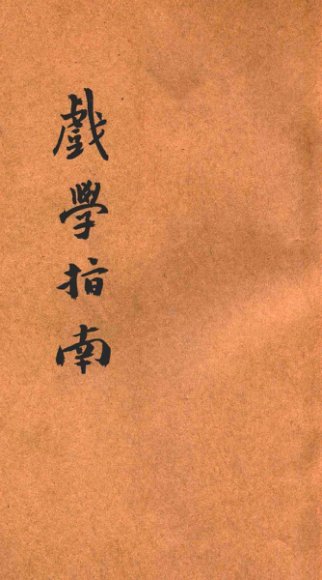 戲學指南